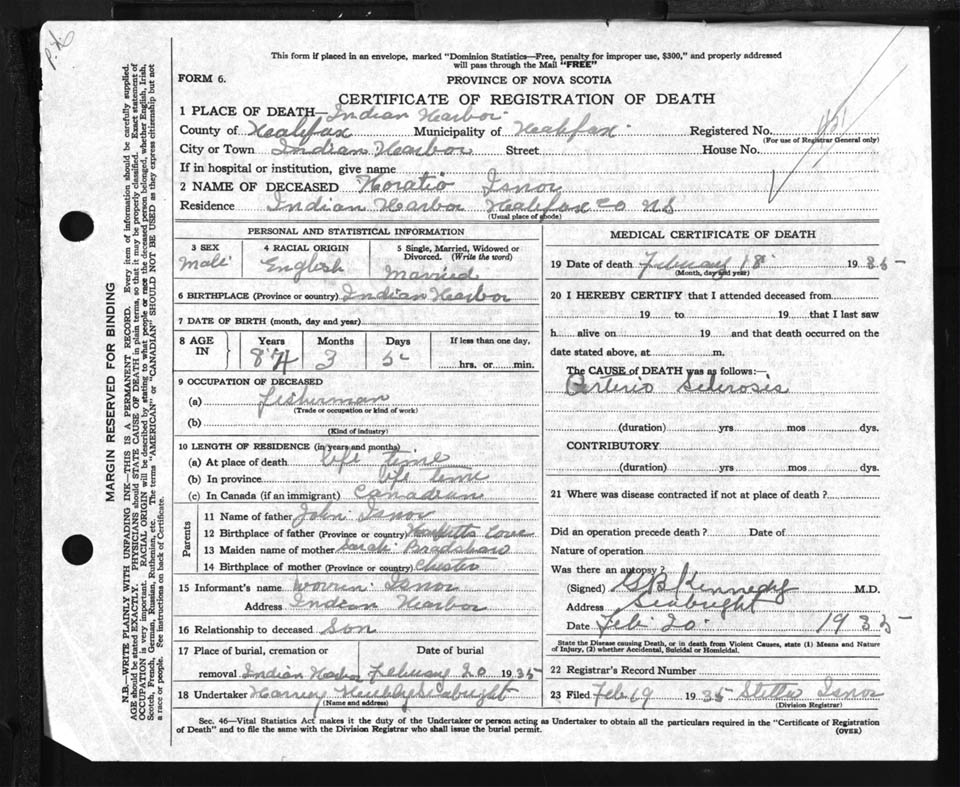 P.A.
This form if placed in an envelope, marked "Dominion Statistics—Free, penalty for improper use, $300," and properly addressed
will pass through the Mail "FREE"
FORM 6.
PROVINCE OF NOVA SCOTIA
CERTIFICATE OF REGISTRATION OF DEATH
1 PLACE OF DEATH— Indian Harbor
County of Halifax Municipality of Halifax Registered No.
(For use of Registrar General only)
City or Town Indian Harbor Street House No.
If in hospital or institution, give name
2 NAME OF DECEASED Horatio Isnor
Residence Indian Harbor Halifax Co NS
(Usual place of abode)
PERSONAL AND STATISTICAL INFORMATION
3 SEX 4 RACIAL ORIGIN 5 Single, Married, Widowed or
Divorced. (Write the word)
Male English Married
6 BIRTHPLACE (Province or country) Indian Harbor
7 DATE OF BIRTH (month, day and year)
8 AGE IN Years Months Days If less than one day,
84 3 5 hrs. or min.
9 OCCUPATION OF DECEASED
(a) fisherman
(Trade or occupation or kind of work)
(b)
(Kind of industry)
10 LENGTH OF RESIDENCE (in years and months)
(a) At place of death life time
(b) In province life time
(c) In Canada (if an immigrant) Canadian
Parents
11 Name of father John Isnor
12 Birthplace of father (Province or country) Cove
13 Maiden name of mother Sarah Bradshaw
14 Birthplace of mother (Province or country) Chester
15 Informant's name Isnor
Address Indian Harbor
16 Relationship to deceased Son
17 Place of burial, cremation or Date of burial
removal Indian Harbor February 20 1935
18 Undertaker Harvey Hubley Seabright
(Name and address)
MEDICAL CERTIFICATE OF DEATH
19 Date of death February 18 1935
(Month, day and year)
20 I HEREBY CERTIFY that I attended deceased from
19 to 19 that I last saw
h alive on 19 and that death occurred on the
date stated above, at m.
The CAUSE of DEATH was as follows:—
Arterio Sclerosis
(duration) yrs mos dys.
CONTRIBUTORY
(duration) yrs mos dys.
21 Where was disease contracted if not at place of death?
Did an operation precede death? Date of
Nature of operation
Was there an autopsy?
(Signed) G B Kennedy M.D.
Address Seabright
Date Feb 20 1935
State the Disease causing Death, or in death from Violent Causes, state (1) Means and Nature
of Injury, (2) whether Accidental, Suicidal or Homicidal.
22 Registrar's Record Number
23 Filed Feb 19 1935 Stella Isnor
(Division Registrar)
Sec. 46—Vital Statistics Act makes it the duty of the Undertaker or person acting as Undertaker to obtain all the particulars required in the "Certificate of Registration
of Death" and to file the same with the Division Registrar who shall issue the burial permit.
(OVER)
MARGIN RESERVED FOR BINDING
N.B.—WRITE PLAINLY WITH UNFADING INK—THIS IS A PERMANENT RECORD. Every item of information should be carefully supplied.
AGE should be stated EXACTLY. PHYSICIANS should STATE CAUSE OF DEATH in plain terms, so that it may be properly classified. Exact statement of
OCCUPATION is very important. RACIAL ORIGIN will be described by stating to what people or race the deceased person belonged, whether English, Irish,
Scotch, French, German, Russian, Ruthenian, etc. The terms "AMERICAN" or "CANADIAN" SHOULD NOT BE USED as they express citizenship but not
a race or people. See instructions on back of Certificate.